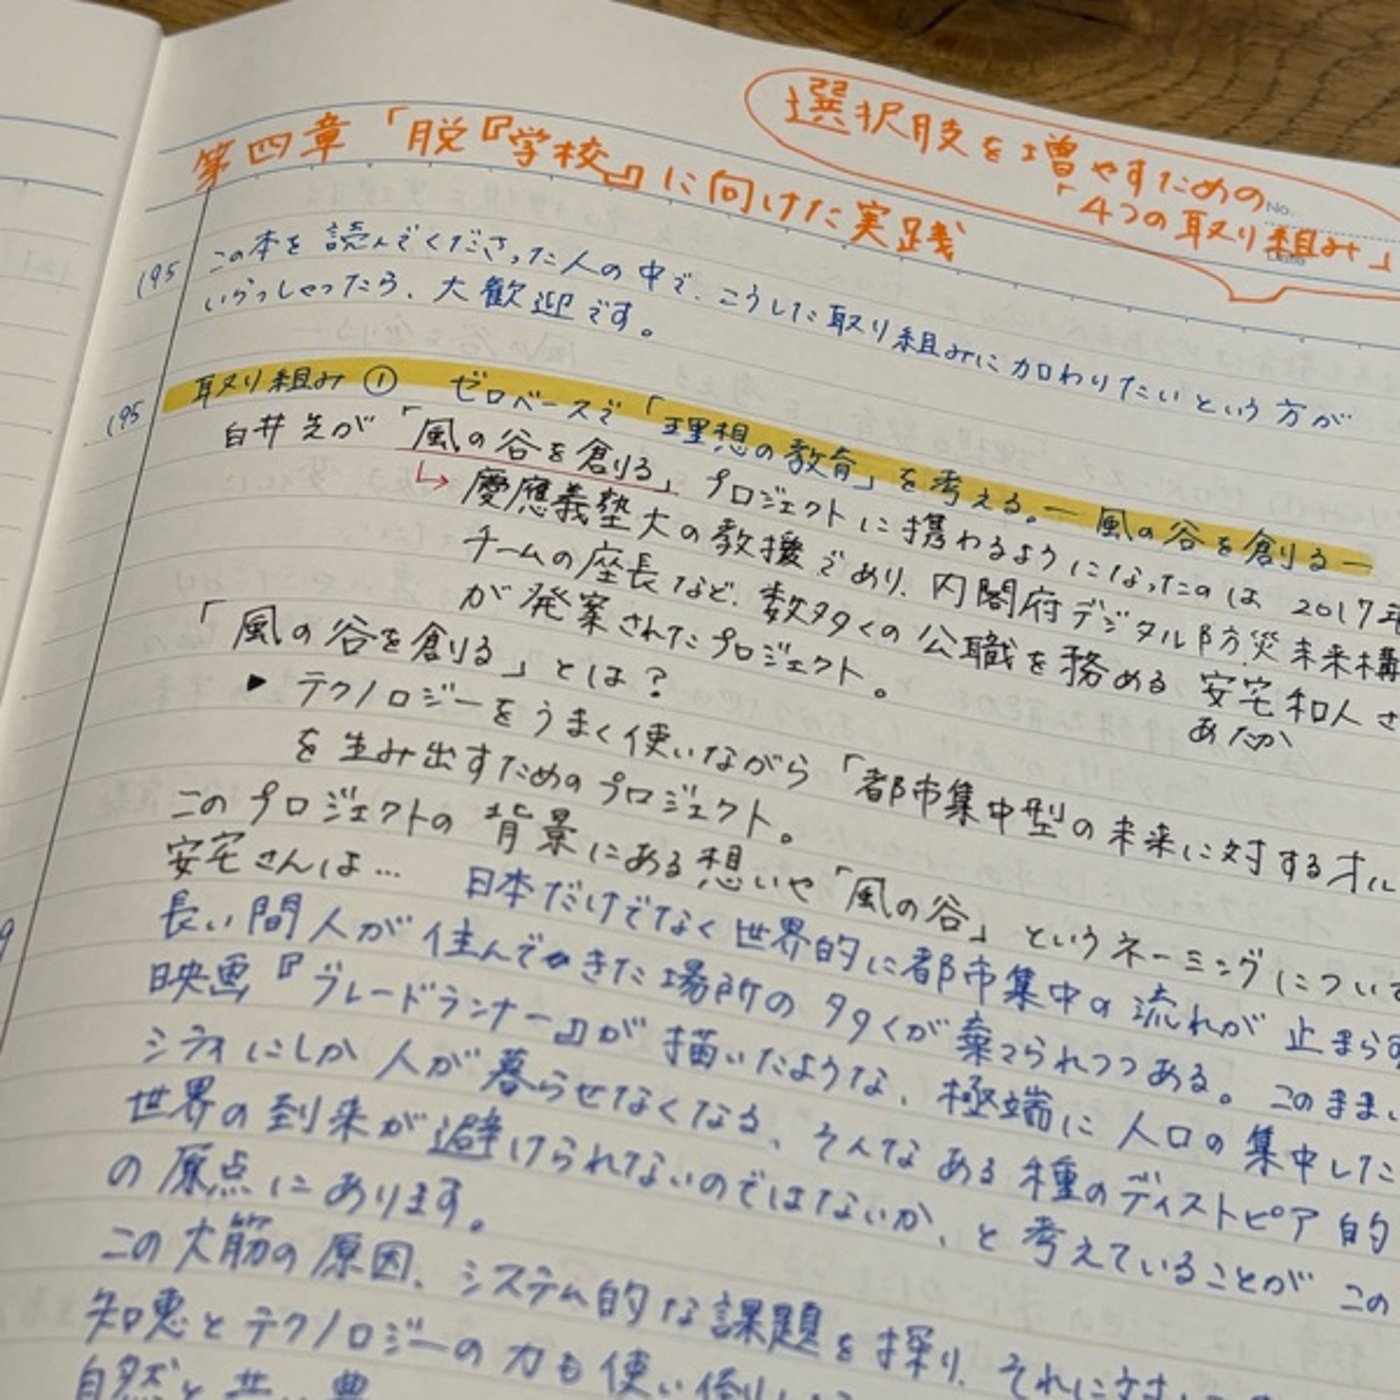 選択肢を増やすための
「4つの取り組み」
No.
Date
第四章「脱『学校』」に向けた実践
195 この本を読んでくださった人の中で、こうした取り組みに加わりたいという方が
いらっしゃったら、大歓迎です。
195 取り組み① ゼロベースで「理想の教育」を考える。―風の谷を創る―
白井先が「風の谷を創る」プロジェクトに携わるようになったのは 2017年
↳ 慶應義塾大の教授であり、内閣府デジタル防災未来構
チームの座長など、数多くの公職を務める 安宅和人さ
あたか
が発案されたプロジェクト。
「風の谷を創る」とは?
▶ テクノロジーをうまく使いながら「都市集中型の未来に対するオル
を生み出すためのプロジェクト。
このプロジェクトの背景にある想いや「風の谷」というネーミングについて
安宅さんは… 日本だけでなく世界的に都市集中の流れが止まらず
長い間人が住んできた場所の多くが棄てられつつある。このまま
映画『ブレードランナー』が描いたような、極端に人口の集中した
シティにしか人が暮らせなくなる、そんなある種のディストピア的
世界の到来が避けられないのではないか、と考えていることがこの
の原点にあります。
この大筋の原因、システム的な課題を探り、それに対
知恵とテクノロジーの力も使い倒し
自然と共に豊
9